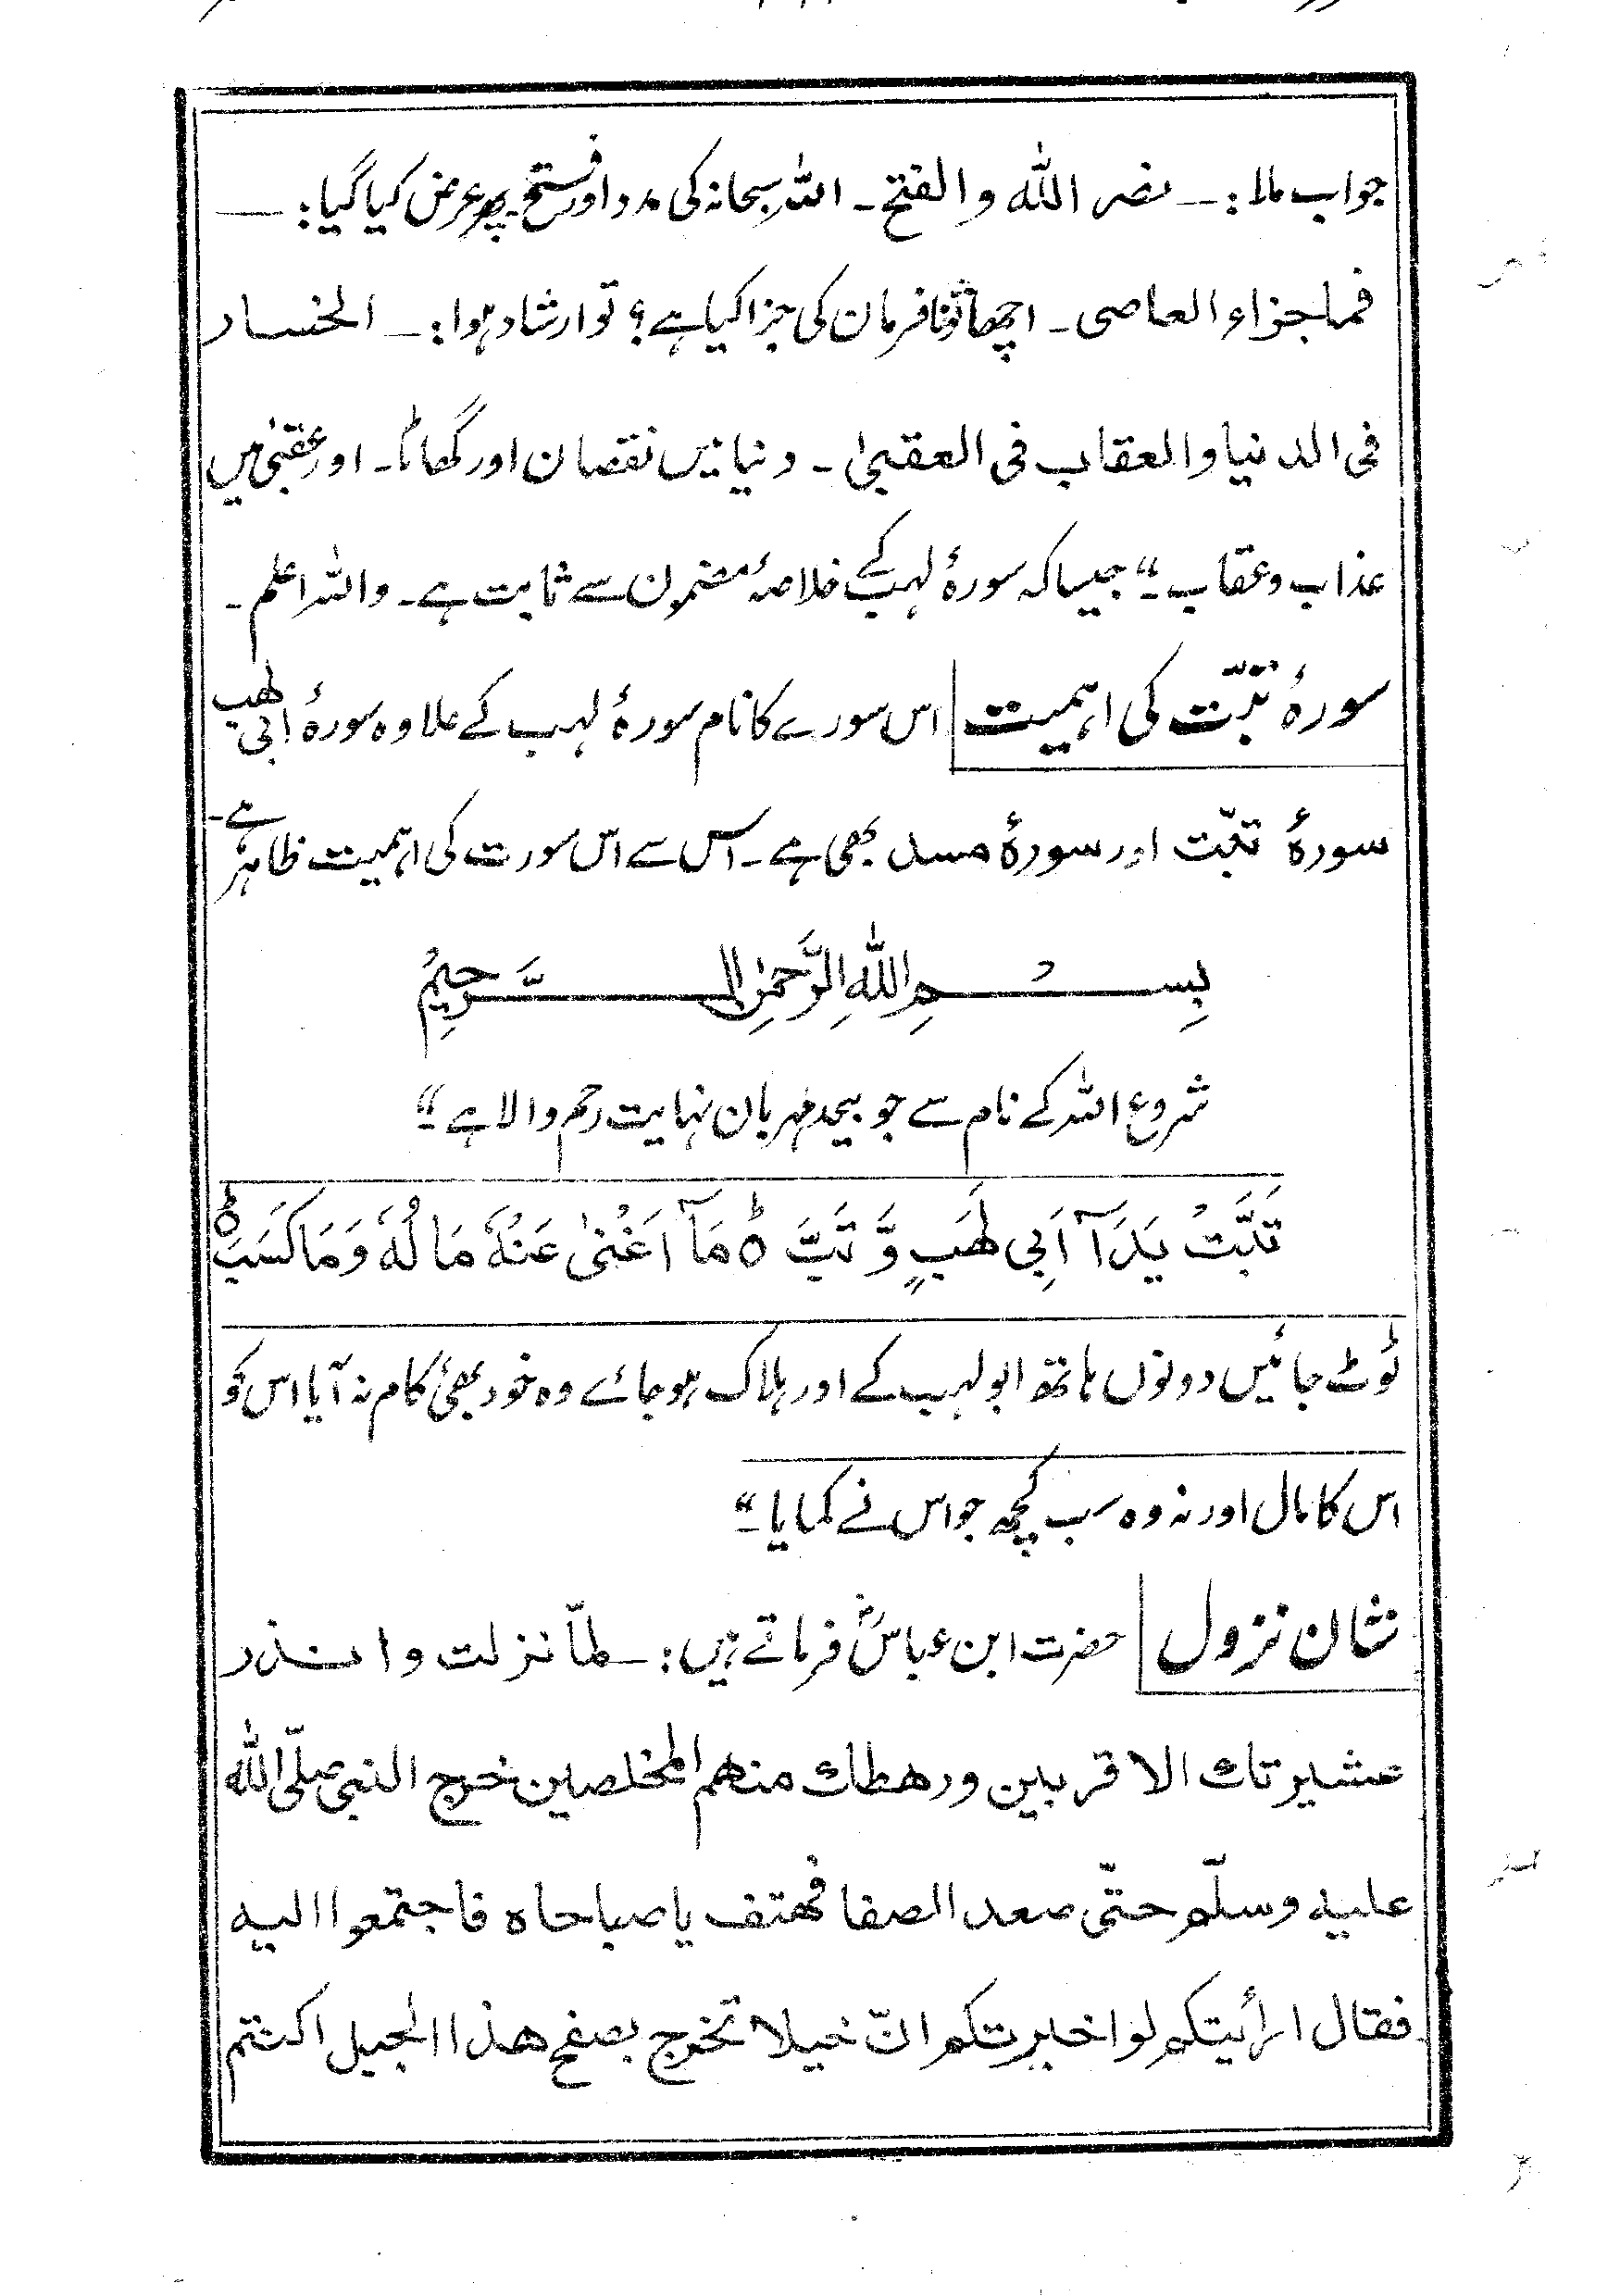 جواب ملا:۔ نصر اللہ والفتح۔ اللہ سبحانہ کی مدد اور فتح۔ پھر عرض کیا گیا:۔
فما جزاء العاصی۔ اچھا تو نافرمان کی جزا کیا ہے؟ تو ارشاد ہوا:۔ الخسار
فی الدنیا والعقاب فی العقبیٰ۔ دنیا میں نقصان اور گھاٹا۔ اور عقبیٰ میں
عذاب وعقاب۔“ جیسا کہ سورۂ لہب کے خلاصۂ مضمون سے ثابت ہے۔ واللہ اعلم۔
سورۂ تبّت کی اہمیت اس سورے کا نام سورۂ لہب کے علاوہ سورۂ ابی لھب
سورۂ تبّت اور سورۂ مسد بھی ہے۔ اس سے اس سورت کی اہمیت ظاہر ہے۔
بِسْمِ اللهِ الرَّحْمٰنِ الرَّحِيْمُ
شروع اللہ کے نام سے جو بیحد مہربان نہایت رحم والا ہے۔“
تَبَّتْ يَدَآ اَبِي لَهَبٍ وَّ تَبَّ ؕ مَآ اَغْنٰى عَنْهُ مَا لُهٗ وَمَا كَسَبَ ؕ
ٹوٹ جائیں دونوں ہاتھ ابو لہب کے اور ہلاک ہو جائے وہ خود بھی کام نہ آیا اس کو
اس کا مال اور نہ وہ سب کچھ جو اس نے کمایا۔“
شان نزول حضرت ابن عباسؓ فرماتے ہیں:۔ لمّا نزلت وانذر
عشیرتك الاقربین ورھطك منھم المخلصین خرج النبی صلّی اللہ
علیہ وسلّم حتّی صعد الصفا فھتف یا صباحاہ فاجتمعوا الیہ
فقال ارأیتکم لو اخبرتکم انّ خیلا تخرج بصفح ھذا الجبل اکنتم